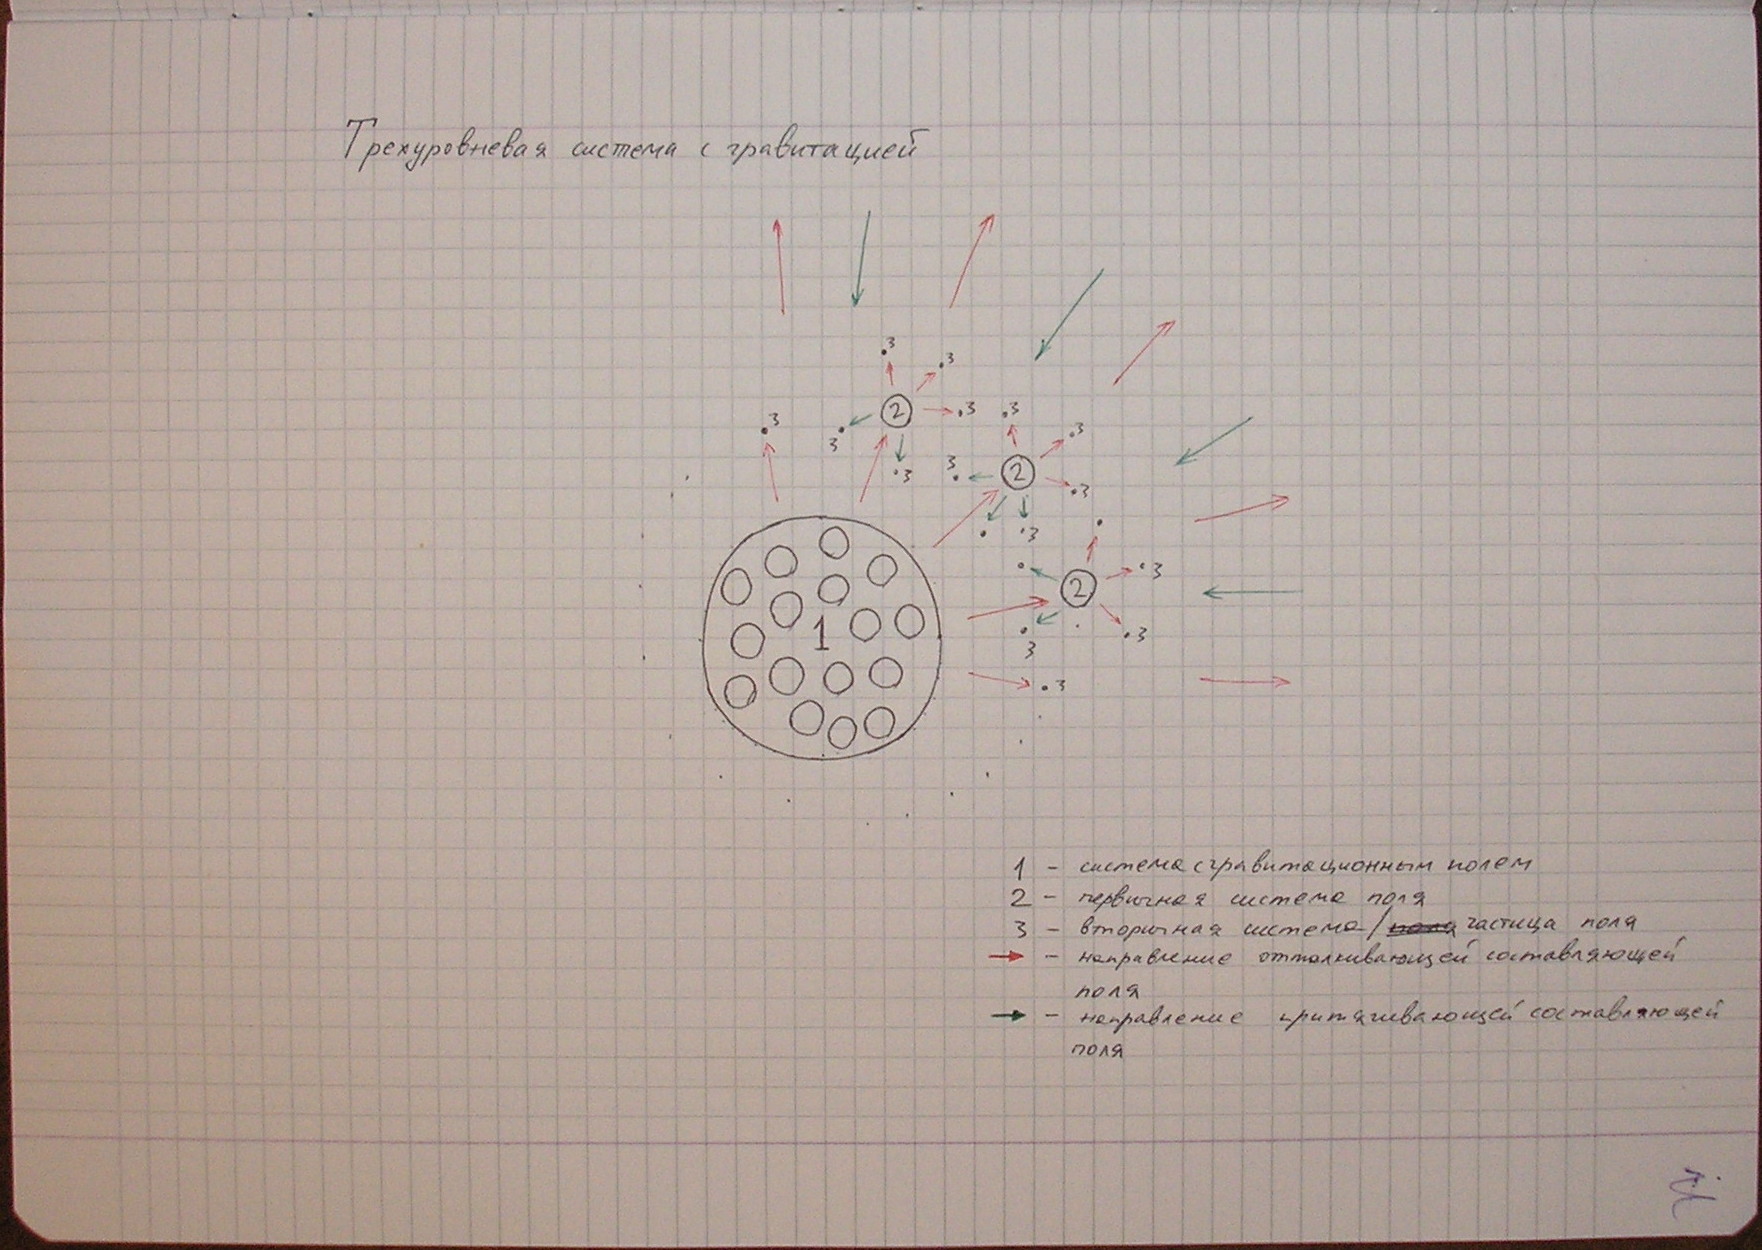 Трехуровневая система с гравитацией
3
3
3
2
3
3
3
3
3
3
2
3
3
3
2
3
3
1
3
1 - система с гравитационным полем
2 - первичная система поля
3 - вторичная система / частица поля
- направление отталкивающей составляющей
поля
- направление притягивающей составляющей
поля